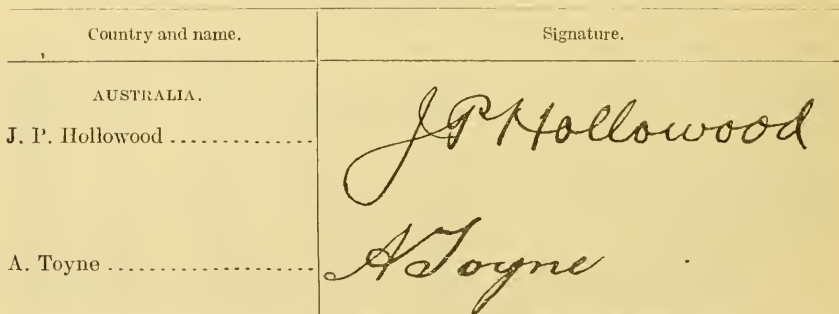 Country and name. Signature.
AUSTRALIA.
J. P. Hollowood .............. J P Hollowood
A. Toyne .................... A Toyne